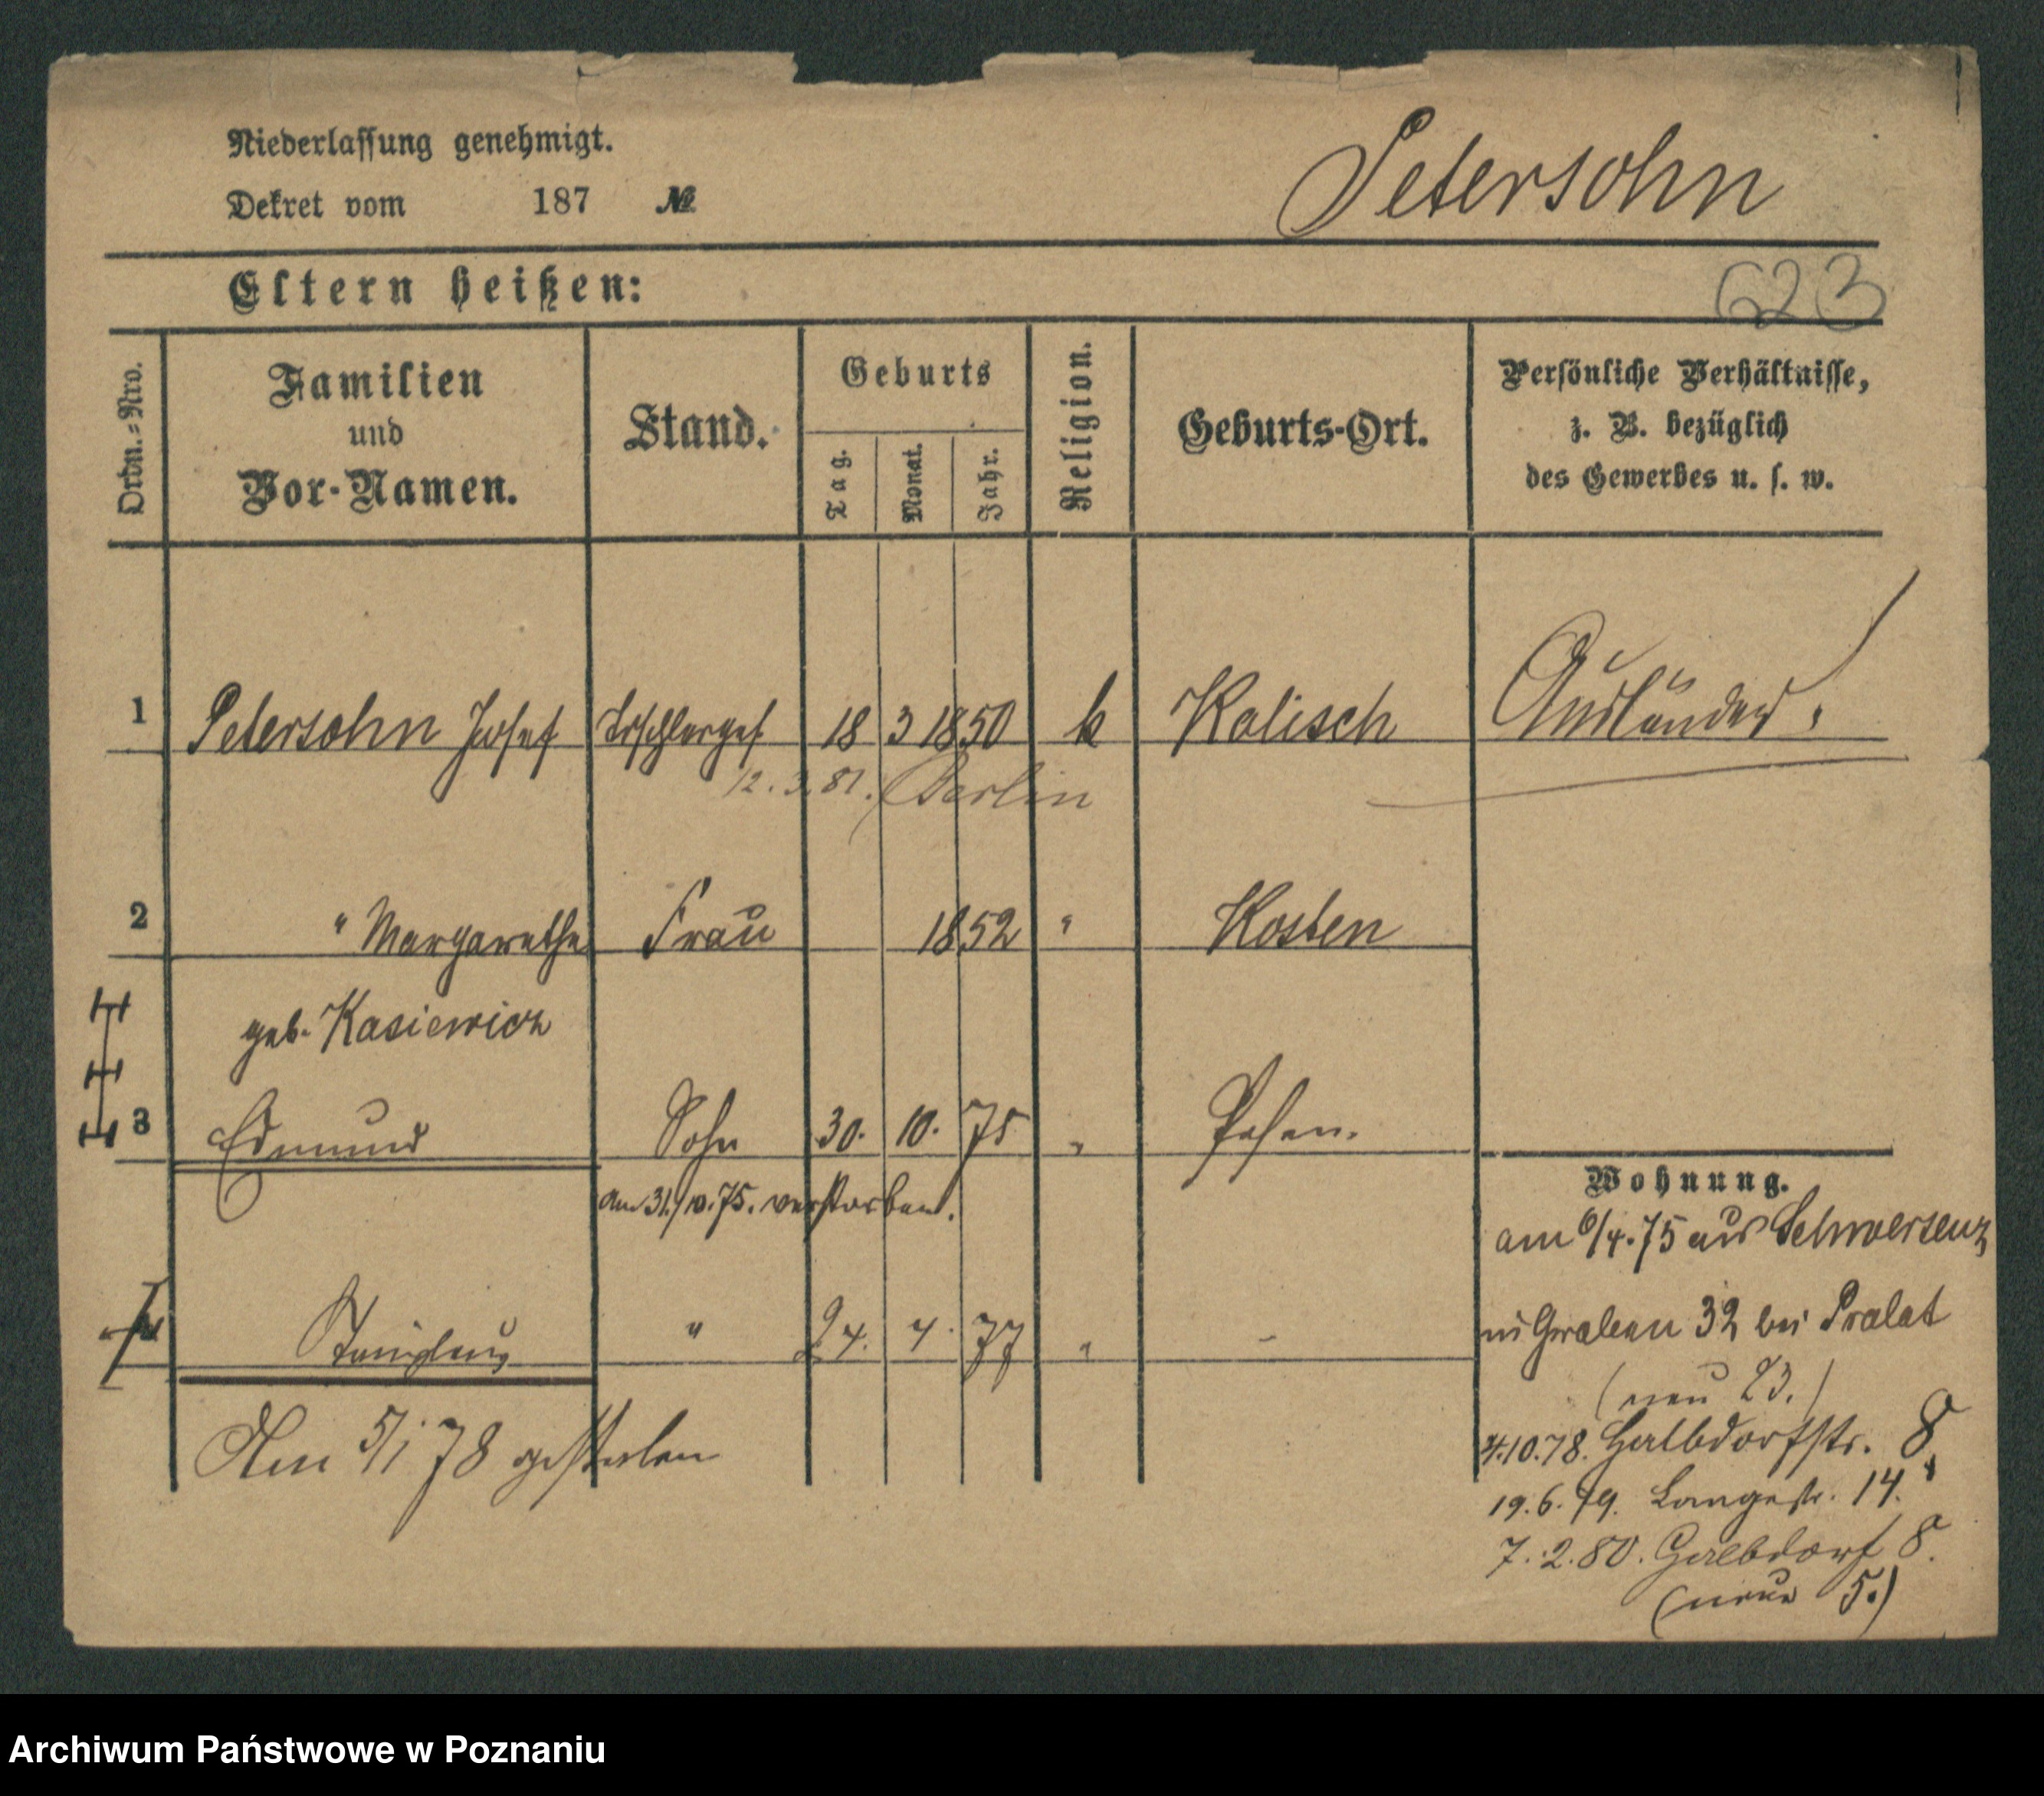 Niederlassung genehmigt.
Dekret vom 187 №
Petersohn
Eltern heißen:
623
Ordn.-Nro.
Familien
und
Vor-Namen.
Stand.
Geburts
Tag.
Monat.
Jahr.
Religion.
Geburts-Ort.
Persönliche Verhältnisse,
z. B. bezüglich
des Gewerbes u. s. w.
1 Petersohn Josef Tischlerges 18 3 1850 k Kalisch Ausländer.
12.3.81. Berlin
2 " Margarethe Frau 1852 " Kosten
geb. Kasiewicz
3 Edmund Sohn 30. 10. 75 " Posen.
am 31./10.75. verstorben.
Wohnung.
am 6/4.75 aus Schwersenz
Stanislaus " 24. 4. 77 " -
Graben 32 bei Pralat
(neu 23.)
Am 5/1 78 gestorben
4.10.78. Halbdorfstr. 8.
19.6.79. Langestr. 14.
7.2.80. Halbdorf 8.
(neue 5.)
Archiwum Państwowe w Poznaniu